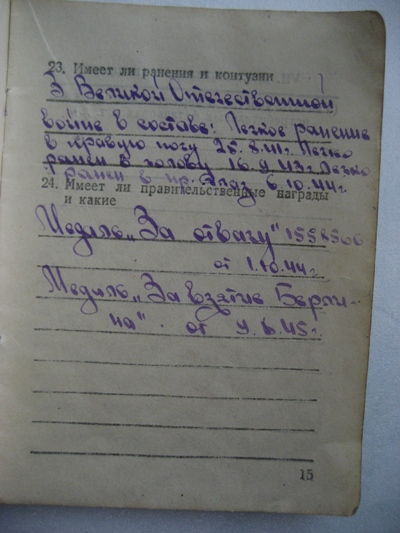 23. Имеет ли ранения и контузии
В Великой Отечественной
войне в составе: Легкое ранение
в правую ногу 25.8.41г. Легко
ранен в голову 16.9.43г. Легко
ранен в пр. глаз 6.10.44г.
24. Имеет ли правительственные награды
и какие
Медаль „За отвагу" 1558566
от 1.10.44г.
Медаль „За взятие Берли-
на" от 9.6.45г.
15